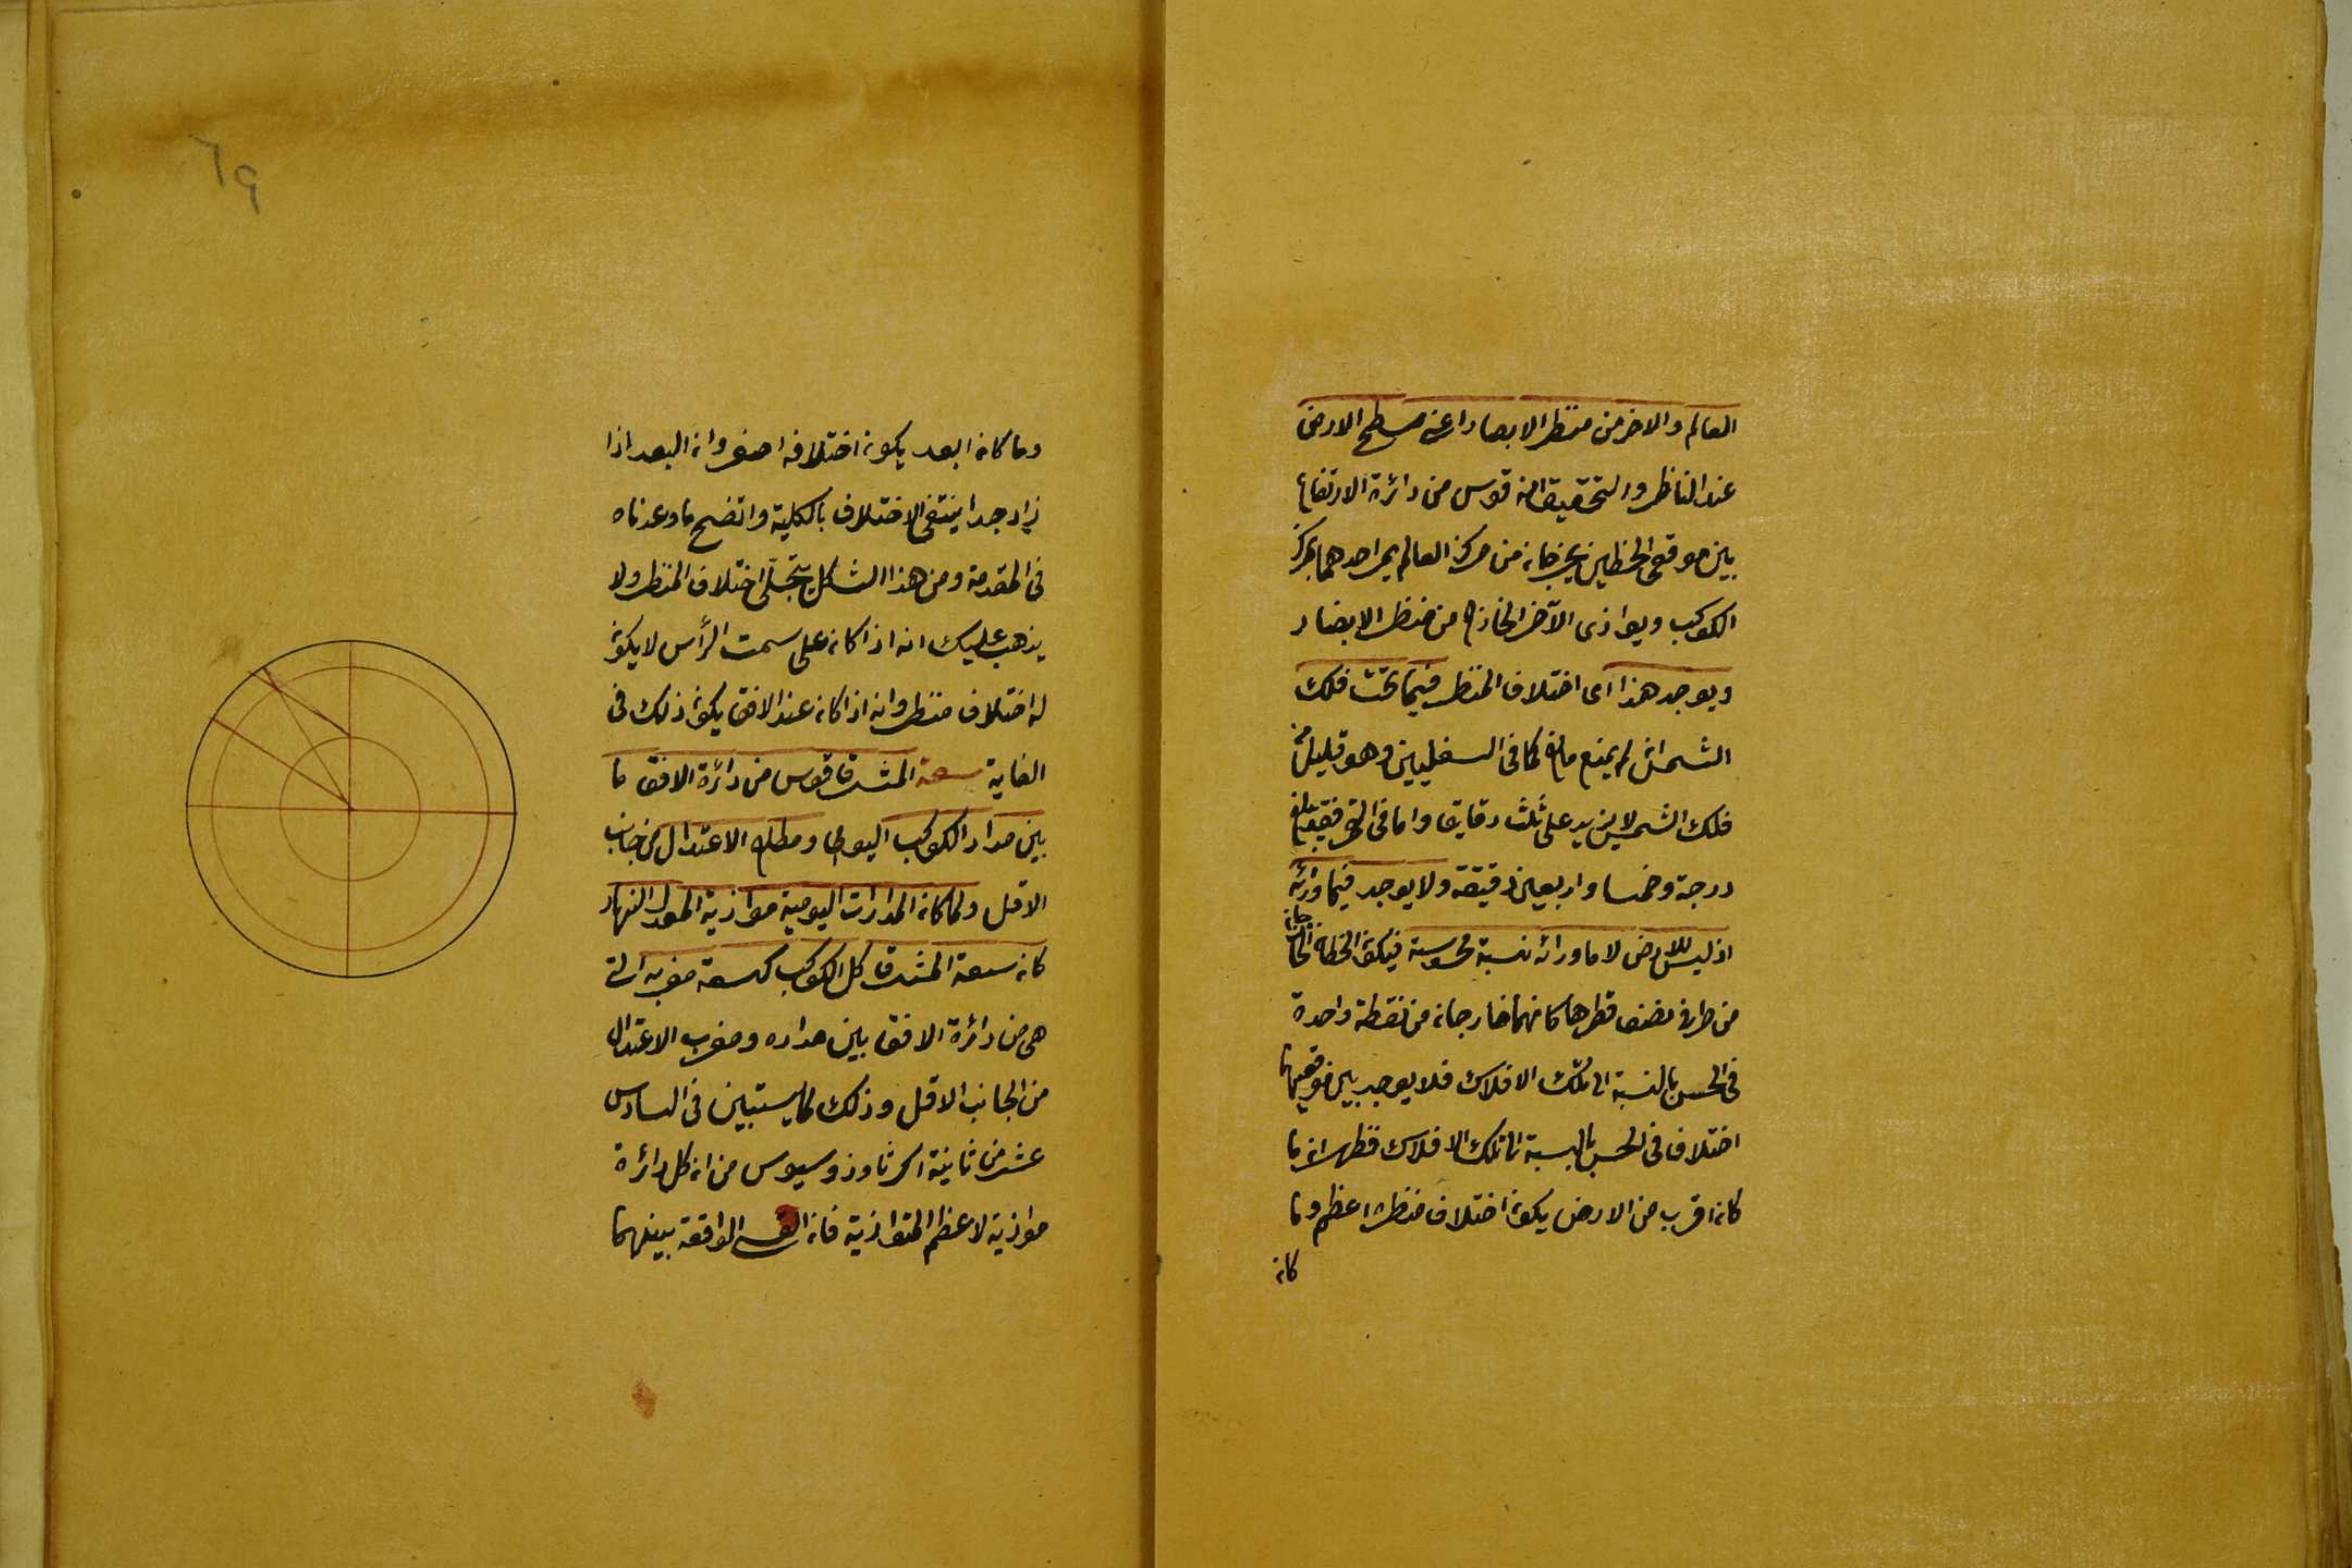 العالم والاخر من منظر الابصار اعنى سطح الارض
عند الناظر والتحقيق انه قوس من دائرة الارتفاع
بين موقعى الخطين يخرجان من مركز العالم يمر احدهما بمركز
الكوكب ويوازى الآخر الخارج من منظر الابصار
ويوجد هذا اى اختلاف المنظر فيما تحت فلك
الشمس ان لم يمنع مانع كما فى السفليين وهو قليل من
فلك الشمس لا يزيد على ثلث دقايق واما فى القمر فقد يبلغ
درجة وخمسا واربعين دقيقة ولا يوجد فيما ورائه
اذ ليس للارض لا ما ورائه نسبة محسوسة فيكون الخطان الخارجان
من طرفى نصف قطرها كانهما خارجان من نقطة واحدة
فى الحس بالنسبة الى تلك الافلاك فلا يوجد بين موقعيهما
اختلاف فى الحس بالنسبة الى تلك الافلاك فظهر ان ما
كان اقرب من الارض يكون اختلاف منظره اعظم وما
كان
٦٩
وما كان ابعد يكون اختلافه اصغر وان البعد اذا
زاد جدا ينتفى الاختلاف بالكلية واتضح ما وعدناه
فى المقدمة ومن هذا الشكل يتجلّى اختلاف المنظر ولا
يذهب عليك انه اذا كان على سمت الرأس لا يكون
له اختلاف منظر وانه اذا كان عند الافق يكون ذلك فى
الغاية سعة المشرق قوس من دائرة الافق ما
بين مدار الكوكب اليومى ومطلع الاعتدال من جانب
الاقل ولما كان المدارات اليومية موازية لمعدل النهار
كان سعة المشرق كل الكوكب كسعة مغربه التى
هى من دائرة الافق بين مداره ومغرب الاعتدال
من الجانب الاقل وذلك لما يستبين فى السادس
عشر من ثانية اكر ثاوذوسيوس من ان كل دائرة
موازية لاعظم المتوازية فان القسى الواقعة بينهما